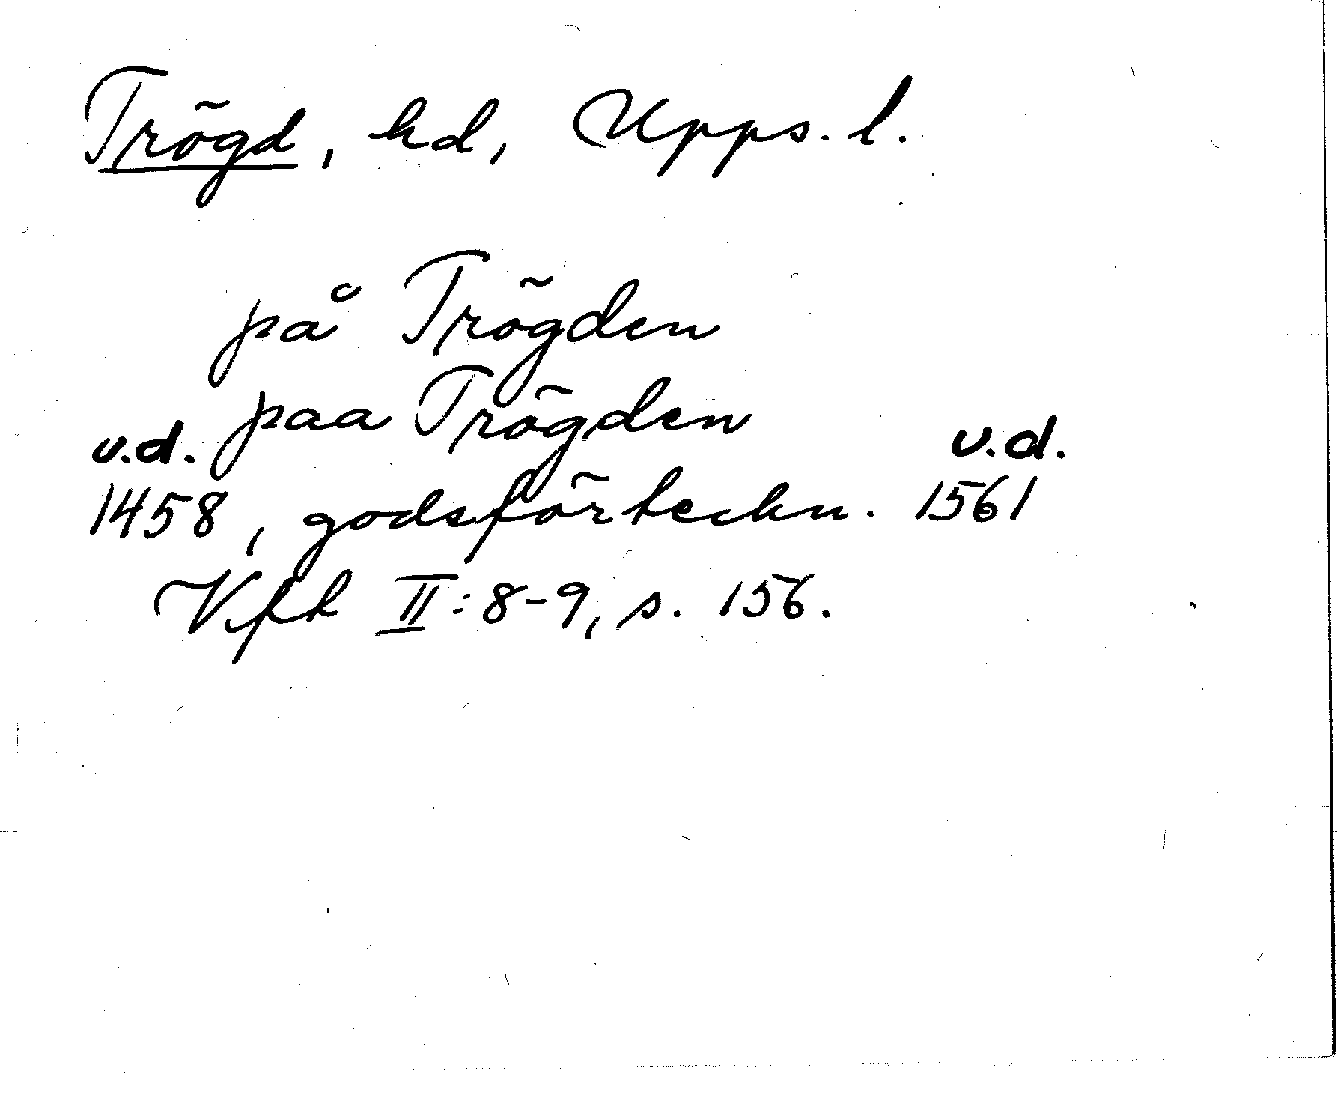 Trögd, hd, Upps. l.
på Trögden
paa Trögden
u.d. u.d.
1458, godsförteckn. 1561
Vfth II: 8-9, s. 156.